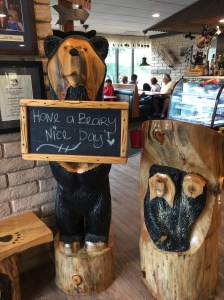 Have a Beary
Nice Day!